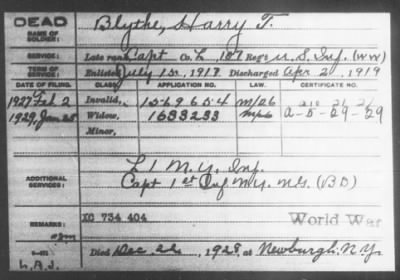 DEAD
Blythe, Harry T.
NAME OF SOLDIER:
SERVICE: Late rank Capt Co. L, 107 Reg't U.S. Inf. (WW)
TERM OF SERVICE: Enlisted July 15, 1917 Discharged Apr 2, 1919
DATE OF FILING. CLASS. APPLICATION NO. LAW. CERTIFICATE NO.
1927 Feb 2 Invalid, 1569654
1929, Jan 25 Widow, 1633233 a-5-29-29
Minor,
ADDITIONAL SERVICES: L 1 N.Y. Inf.
Capt 1st Inf N.Y.
REMARKS: XC 734 404 World War
Died Dec 22, 1928, at Newburgh, N.Y.
L.A.J.